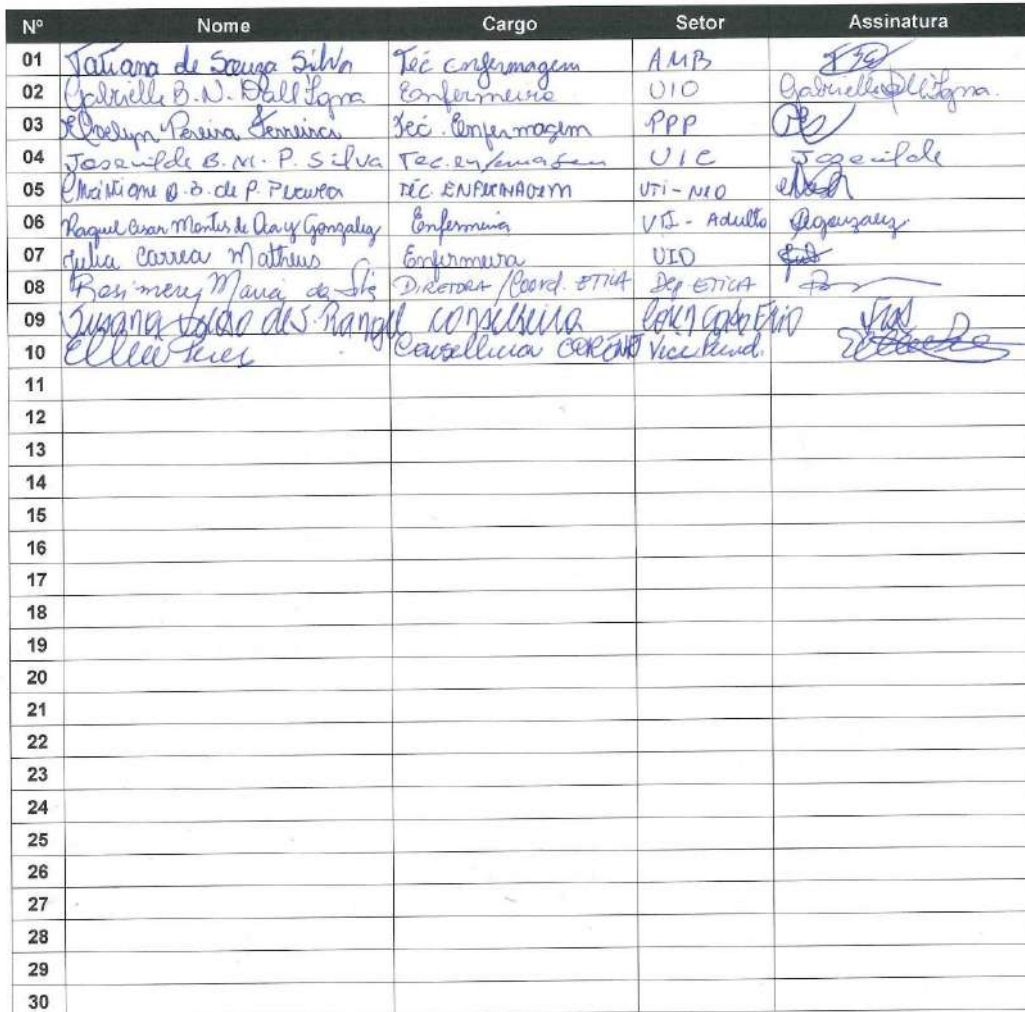 Nº Nome Cargo Setor Assinatura
01 Tatiana de Souza Silva Téc enfermagem AMB
02 Gabrielle B. N. Dall'Igna Enfermeira UIO Gabrielle Dall'Igna.
03 Pereira Ferreira Téc. Enfermagem PPP
04 Josenilde B. M. P. Silva Tec. enfermagem UIC Josenilde
05 Christiane B. de P. TÉC ENFERMAGEM UTI-NEO
06 Raquel Cesar Montes de Oca y Gonzalez Enfermeira UTI - Adulto
07 Julia Correa Matheus Enfermeira UIO
08 Rosimere Maria da DIRETORA / Coord. ETICA Dep ETICA
09 Susana S. Rangel conselheira Cabo Frio
10 Conselheira COREN
11
12
13
14
15
16
17
18
19
20
21
22
23
24
25
26
27
28
29
30